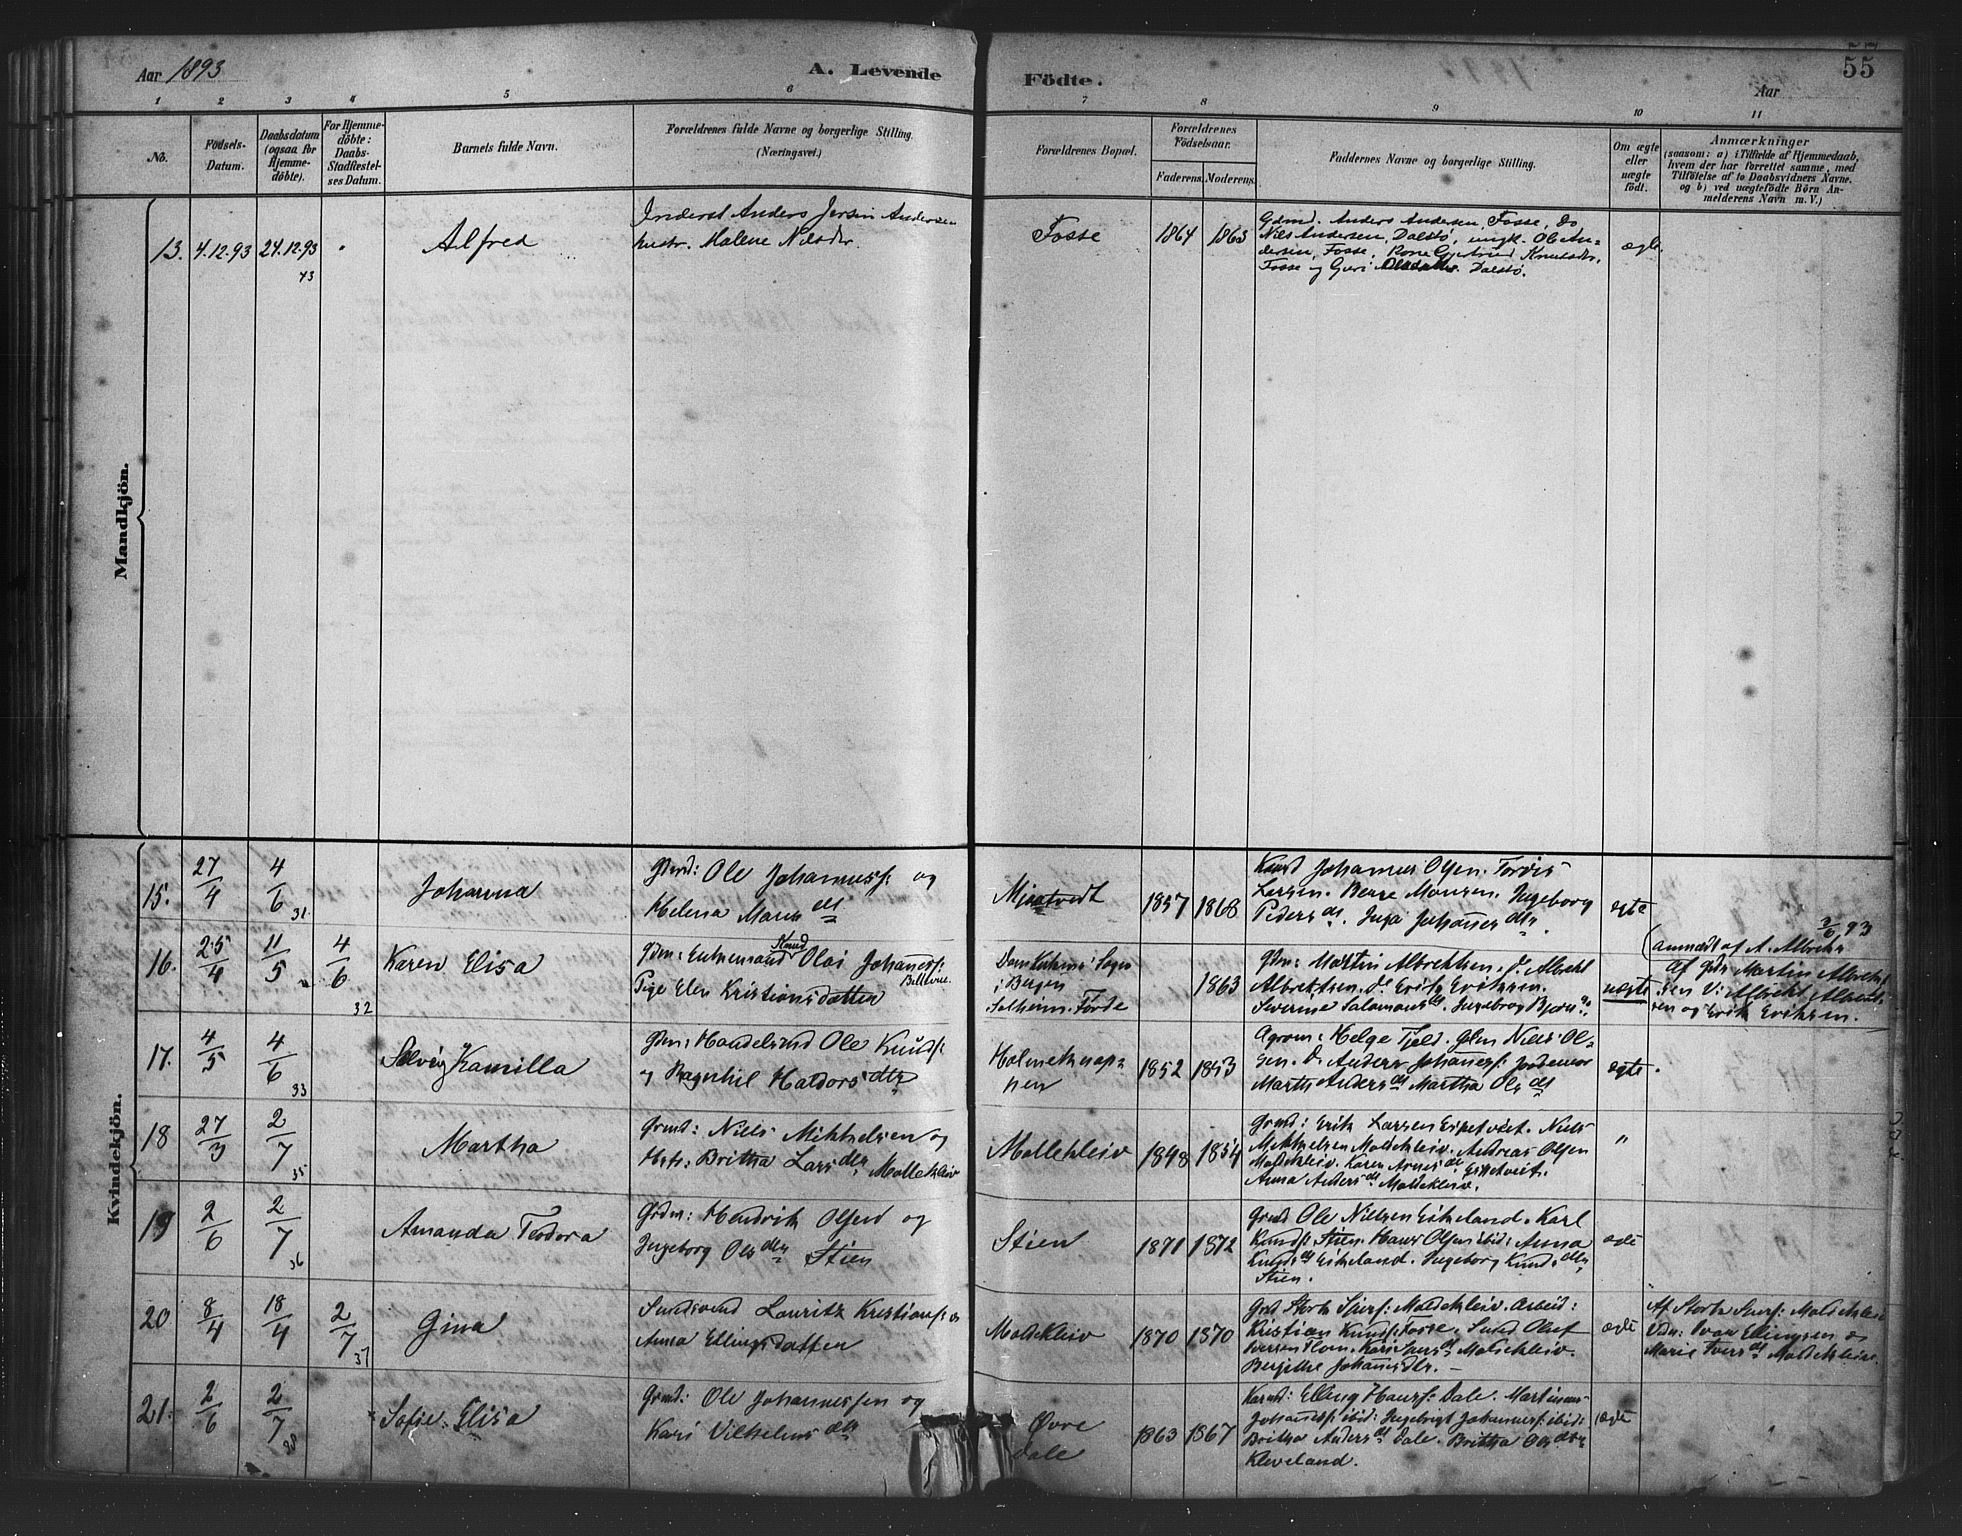 Aar 1893
A. Levende
Födte.
55
Aar
1 2 3 4 5 6 7 8 9 10 11
No.
Födsels-
Datum.
Daabsdatum
(ogsaa for
Hjemme-
döbte).
For Hjemme-
döbte:
Daabs-
Stadfæstel-
ses Datum.
Barnets fulde Navn.
Forældrenes fulde Navne og borgerlige Stilling.
(Næringsvei.)
Forældrenes Bopæl.
Forældrenes
Födselsaar.
Faderens. Moderens.
Faddernes Navne og borgerlige Stilling.
Om ægte
eller
uægte
födt.
Anmærkninger
(saasom: a) i Tilfælde af Hjemmedaab,
hvem der har forrettet samme, med
Tilföielse af to Daabsvidners Navne.
og b) ved uægtefödte Börn An-
melderens Navn m. V.)
Mandkjön.
13. 4.12.93 24.12.93
43
Alfred
Inderst Anders Andersen
hustr. Malene Nilsdtr.
Fosse
1864 1863
Gdmd. Anders Andersen, Fosse, Do
Nils Andersen, Dalstø, ungk. Ole An-
dersen, Fosse, Kone Gjertrud Knutsdtr,
Fosse og Guri Dalstø.
ægte
Kvindekjön.
15. 27/4 4/6 31.
Johanna
Ole Johanness: og
Helena Mons dtr
Mjøstvedt
1857 1868
Johannes Olsen.
Larsen. Monsen. Ingeborg
Peders dtr. Inga Johannes dtr.
egte
16. 25/4 11/5 4/6
32
Karen Elisa
Gdm: Enkemand Knud Olai Johanness:
Pige Elen Kristians datter
Domkirkens Sogn
i Bergen
Solheim. Førde
1863
Gdm: Martin Albrektsen. d. Albrekt
Albrektsen. Do Erik Eriksen.
Severine Salamons dtr. Ingeborg
uægte
2/6 93
(anmeldt af A. Albrekts
Af Gdm Martin Albrekt
sen V: Albrekt Albrekt
sen og Erik Eriksen.
17. 4/5 4/6 33
Solvig Kamilla
Gdm: Handelsmd Ole Knuds:
og Ragnhil Haldors dtr
Holmeknap-
nen
1852 1853
Helge Niels Ol-
sen. Do Anders Johanness: Jordemor
Martha Anders dtr Martha Ols dtr
egte.
18 27/3 2/7 35
Martha
Grmd: Niels Mikkelsen og
Hstr: Britha Lars dtr Mollekleiv
Mollekleiv
1898 1854
Grmd: Erik Larsen Niels
Mikkelsen Moldekleiv. Andreas Olsen
Moldekleiv. Karen dtr
Anna Anders dtr Moldekleiv.
"
19 2/6 2/7 36
Amanda Teodora
Grdm: Hendrik Olsen og
Ingeborg Ols dtr Stien
Stien
1871 1872
Grmd Ole Nielsen Eikeland. Karl
Knuds: Stien. Hans Olsen ibid: Anna
Knuds dtr Eikeland. Ingeborg Knuds dtr
Stien.
egte
20 8/4 18/4 2/7
37
Gina
Lauritz Kristians: og
Anna Ellings datter
Moldekleiv
1870 1870
Moldekleiv. Arbeid:
Kristian Knuds: Fosse. Oluf
Moldekleiv.
Berjithe Johannes dtr.
egte
Ivar Ellingsen og
Marie Ivers dtr Moldekleiv.
21. 2/6 2/7 38
Sofie Elisa
Grmd: Ole Johannessen og
Kari Vilhelms dtr
Øvre
Dale
1863 1867
Elling Hans: Dale. Martinus
Johanness: ibid: Ingebrigt Johanness: ibid:
Britha Anders dtr Dale. Britha Ols dtr
Kleveland.
ægte